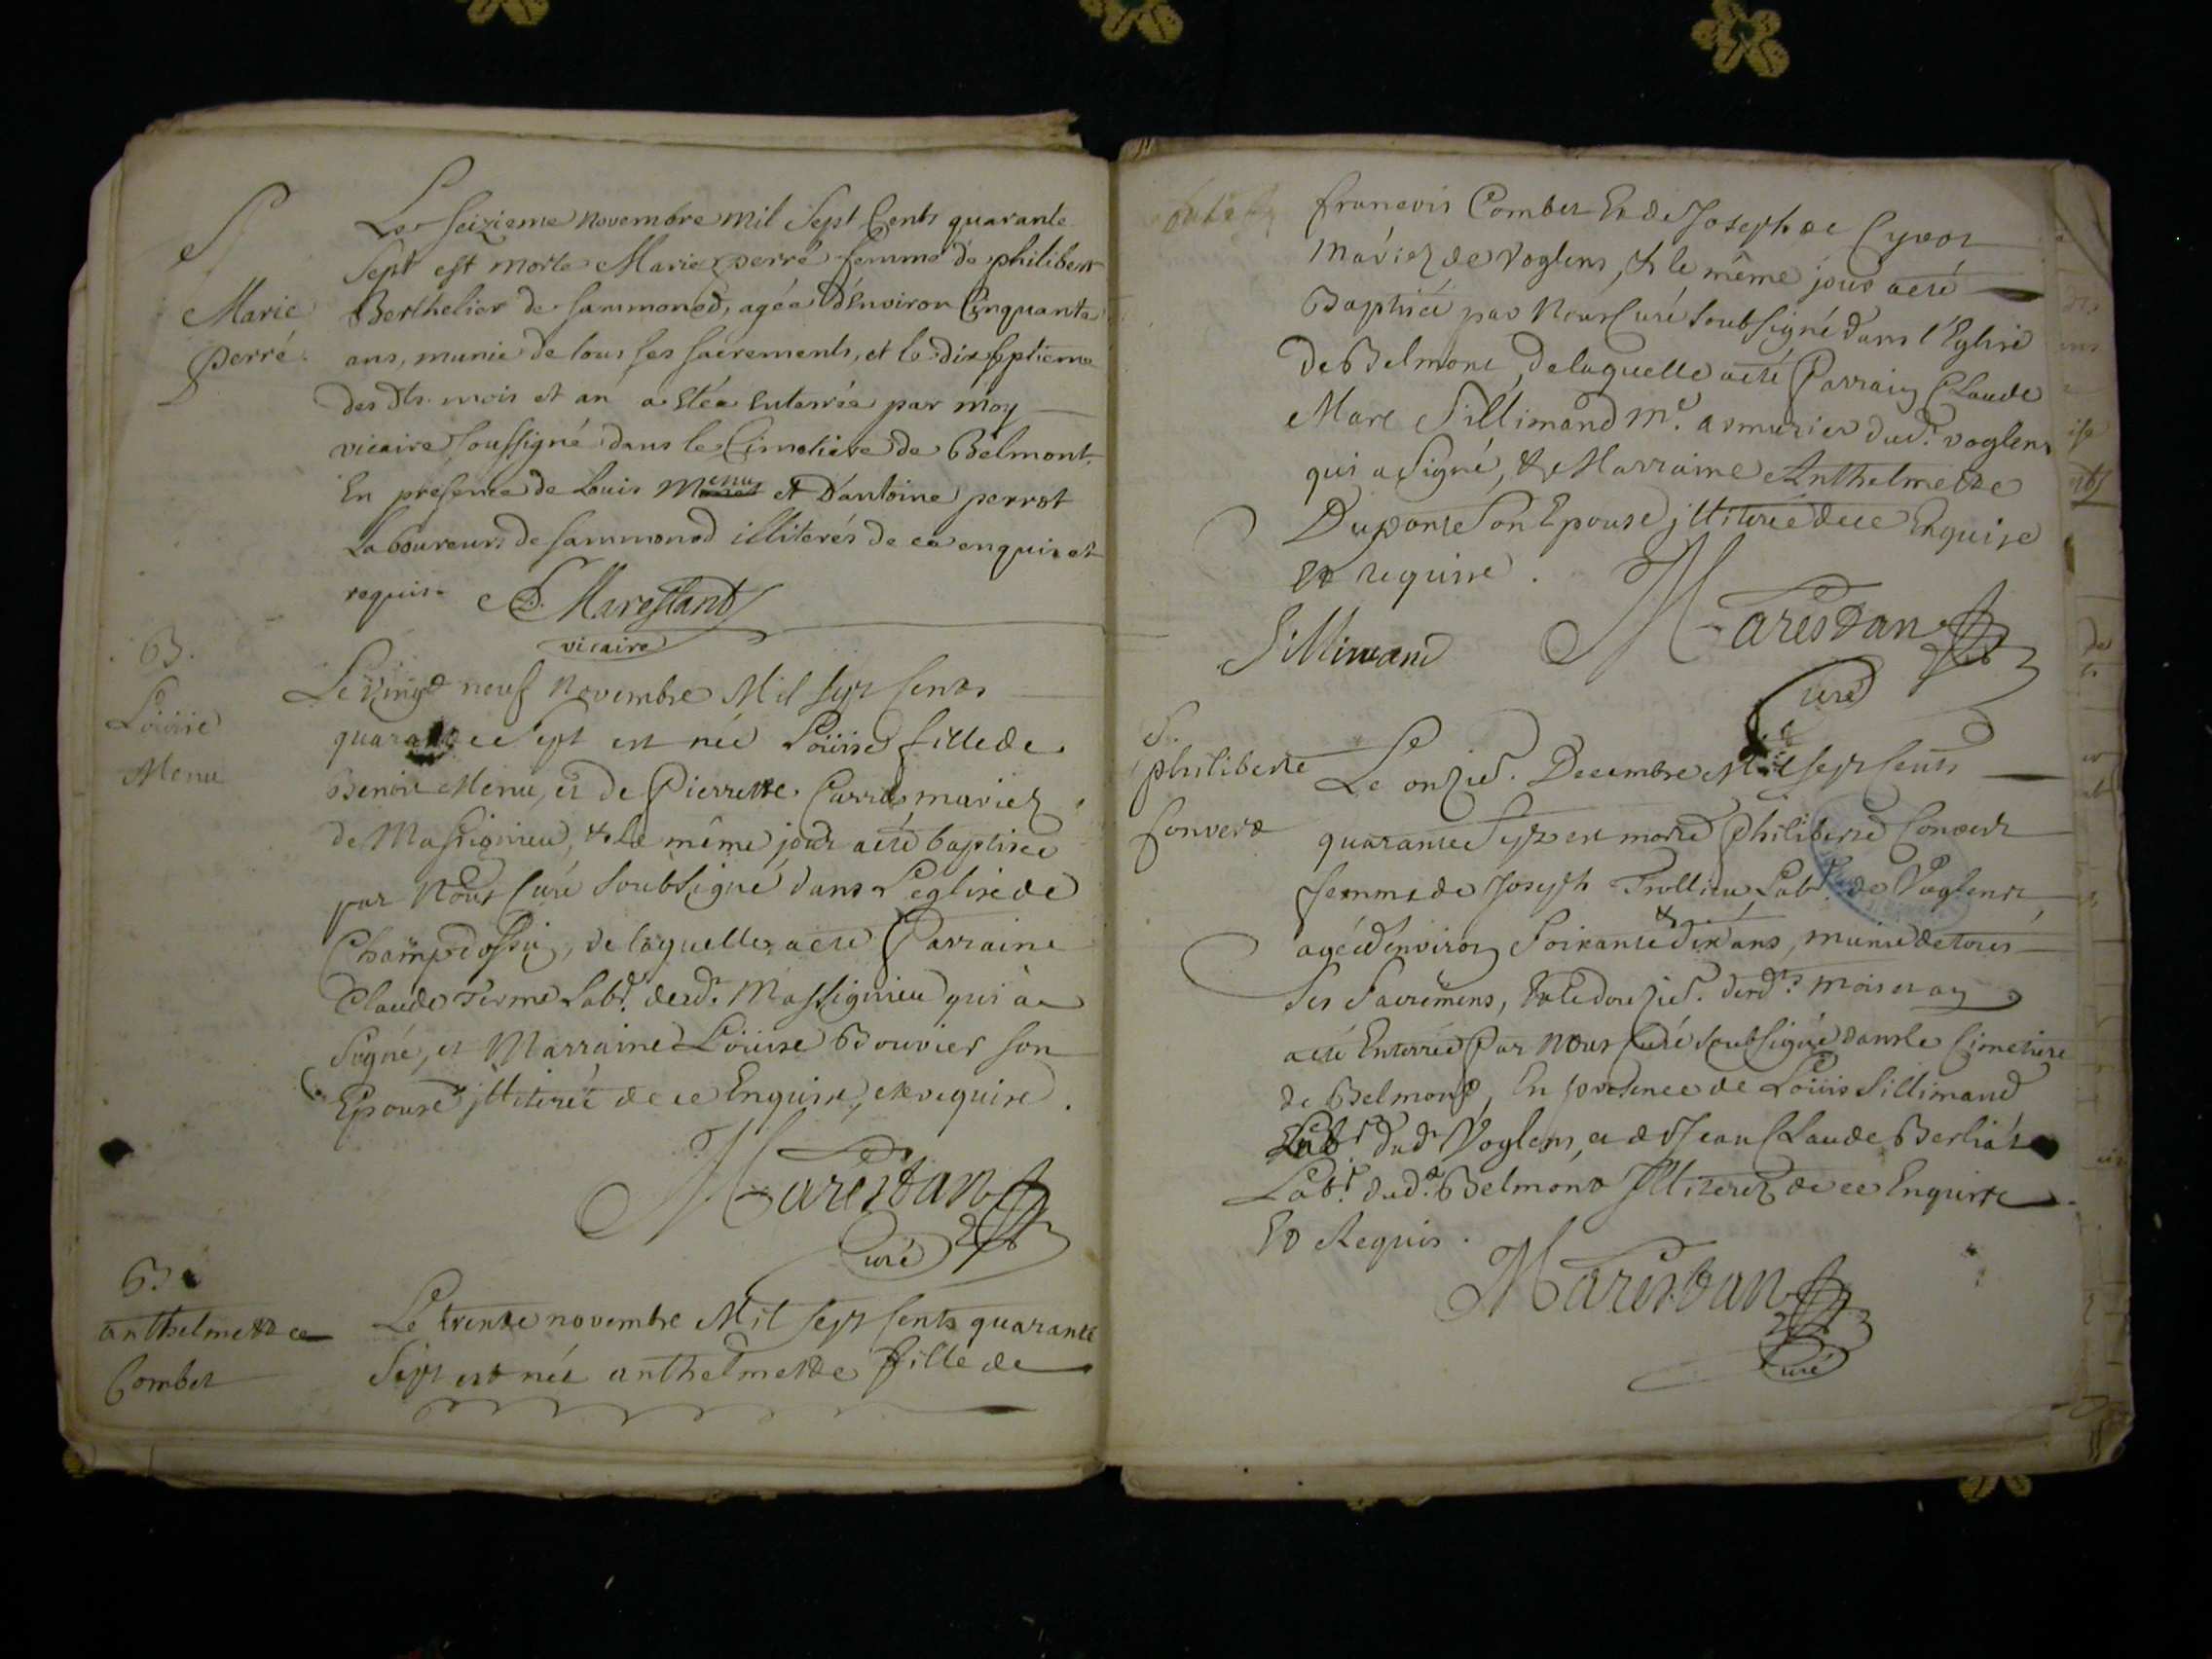 S
Marie
perré.
Le seizieme novembre mil Sept Cents quarante
Sept est morte Marie perré femme de philibert
Berthelier de sammonod, agée d'Environ Cinquante
ans, munie de tous ses sacrements, et le dix septieme
des dts. mois et an a étée enterrée par moy
vicaire soussigné dans le Cimetiere de Belmont.
En presence de Louis Menu et D'antoine perrot
Laboureurs de sammonod illiterés de ce enquis et
requis. Marestant
vicaire
B.
Loüise
Menu
Le vingt neuf Novembre Mil sept cents
quarante Sept est née Loüise fille de
Benoit Menu, et de Pierrette Carrel, mariez
de Massignieu, & le même jour a eté baptisée
par Nous Curé Soubsigné dans L'eglise de
Champdossin, de laquelle a eté Parraine
Claude Terme Labr. dud. Massignieu qui a
Signé, et Marraine Loüise Bouvier son
Epouse jlliterée de ce Enquise, et requise.
Marestan
Curé
B.
anthelmette
Combet
Le trente novembre Mil sept cents quarante
Sept est née anthelmette fille de
francois Combet Et de Josephte Cyvot
Mariez de Voglens, & le même jour a eté
Baptisée par Nous Curé soubsigné dans l'Eglise
de Belmont, de laquelle a eté Parrain Claude
Marc Sillimand Me. armurier dud. voglens
qui a signé, & Marraine Anthelmette
Dupont Son Epouse jlliterée de ce Enquise
Et requise.
Sillimand Marestan
Curé
S.
philiberte
Convert
Le onzie. Decembre Mil sept cents
quarante Sept est morte Philiberte Convert
femme de Joseph Trollieu Labr. de Voglens,
agée d'environ Soixante & dix ans, munie de tous
Ses Sacremens, & le douzie. desd. mois et an
a eté Enterrée Par Nous Curé Soubsigné dans le Cimetiere
de Belmont, En presence de Loüis Sillimand
Labr. dud. Voglens, et de Jean Claude Berliat
Labr. dud. Belmont Jlliterez de ce Enquis
Et Requis.
Marestan
Curé